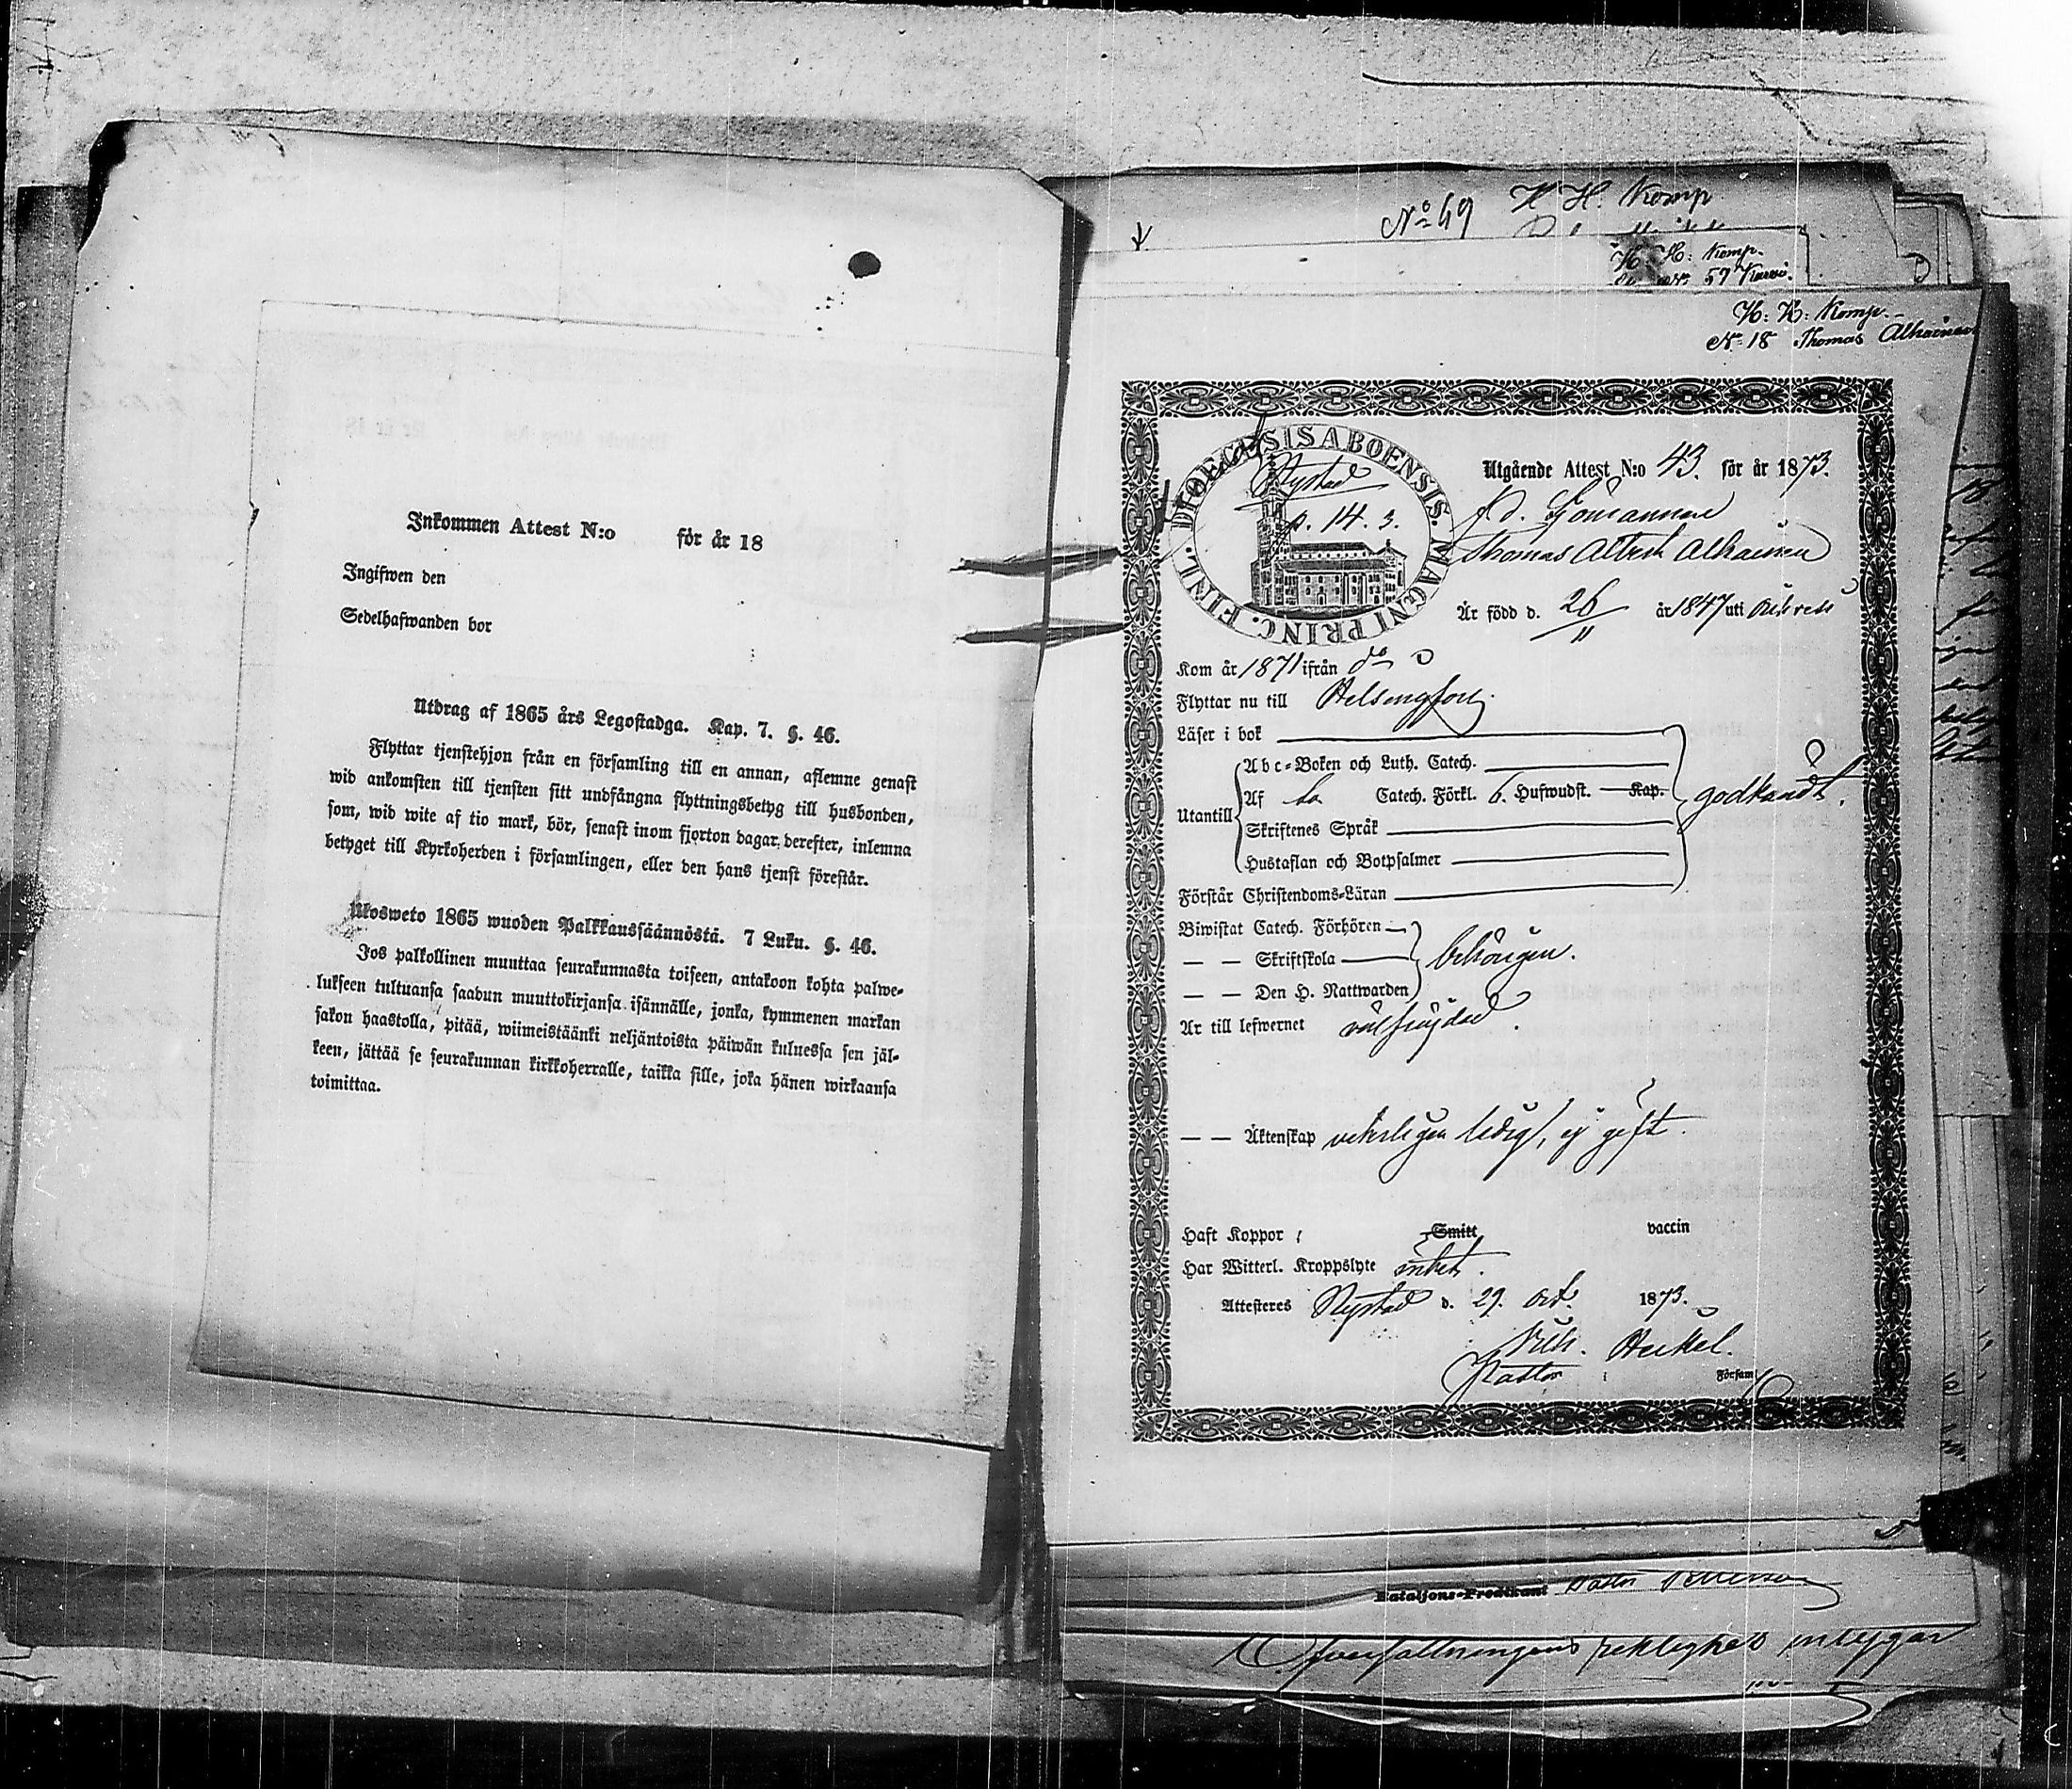 Inkommen Attest N:o för år 18
Ingifwen den
Sedelhafwanden bor
Utdrag af 1865 års Legostadga. Kap. 7. §. 46.
Flyttar tjenstehjon från en församling till en annan, aflemne genast
wid ankomsten till tjensten sitt undfångna flyttningsbetyg till husbonden,
som, wid wite af tio mark, bör, senast inom fjorton dagar derefter, inlemna
betyget till Kyrkoherden i församlingen, eller den hans tjenst förestår.
Ulosweto 1865 wuoden Palkkaussäännöstä. 7 Luku. §. 46.
Jos palkollinen muuttaa seurakunnasta toiseen, antakoon kohta palwe-
lukseen tultuansa saadun muuttokirjansa isännälle, jonka, kymmenen markan
sakon haastolla, pitää, wiimeistäänki neljäntoista päiwän kuluessa sen jäl-
keen, jättää se seurakunnan kirkkoherralle, taikka sille, joka hänen wirkaansa
toimittaa.
No 49 H. Komp
H. Komp.
57
Komp.
No 18 Thomas
DIOECESIS ABOENSIS. MAGNI PRINC. FINL.
Nystad
p. 14. 3.
Utgående Attest N:o 43. för år 1873.
f.d. Sjömannen
Thomas
Är född d. 26/11 år 1847 uti
Kom år 1871 ifrån do
Flyttar nu till Helsingfors.
Läser i bok
Abc-Boken och Luth. Catech.
Utantill Af Catech. Förkl. 6. Hufwudst. Kap. godkändt.
Skriftenes Språk
Hustaflan och Botpsalmer
Förstår Christendoms-Läran
Biwistat Catech. Förhören
— — Skriftskola behörigen.
— — Den H. Nattwarden
Är till lefwernet välfrejdad.
— — Äktenskap veterligen ledig, ej gift.
Haft Koppor Smitt vaccin
Har Witterl. Kroppslyte intet.
Attesteres Nystad d. 29. Oct. 1873.
Heikel.
Pastor i Församl.
Bataljons-Predikant Pastor